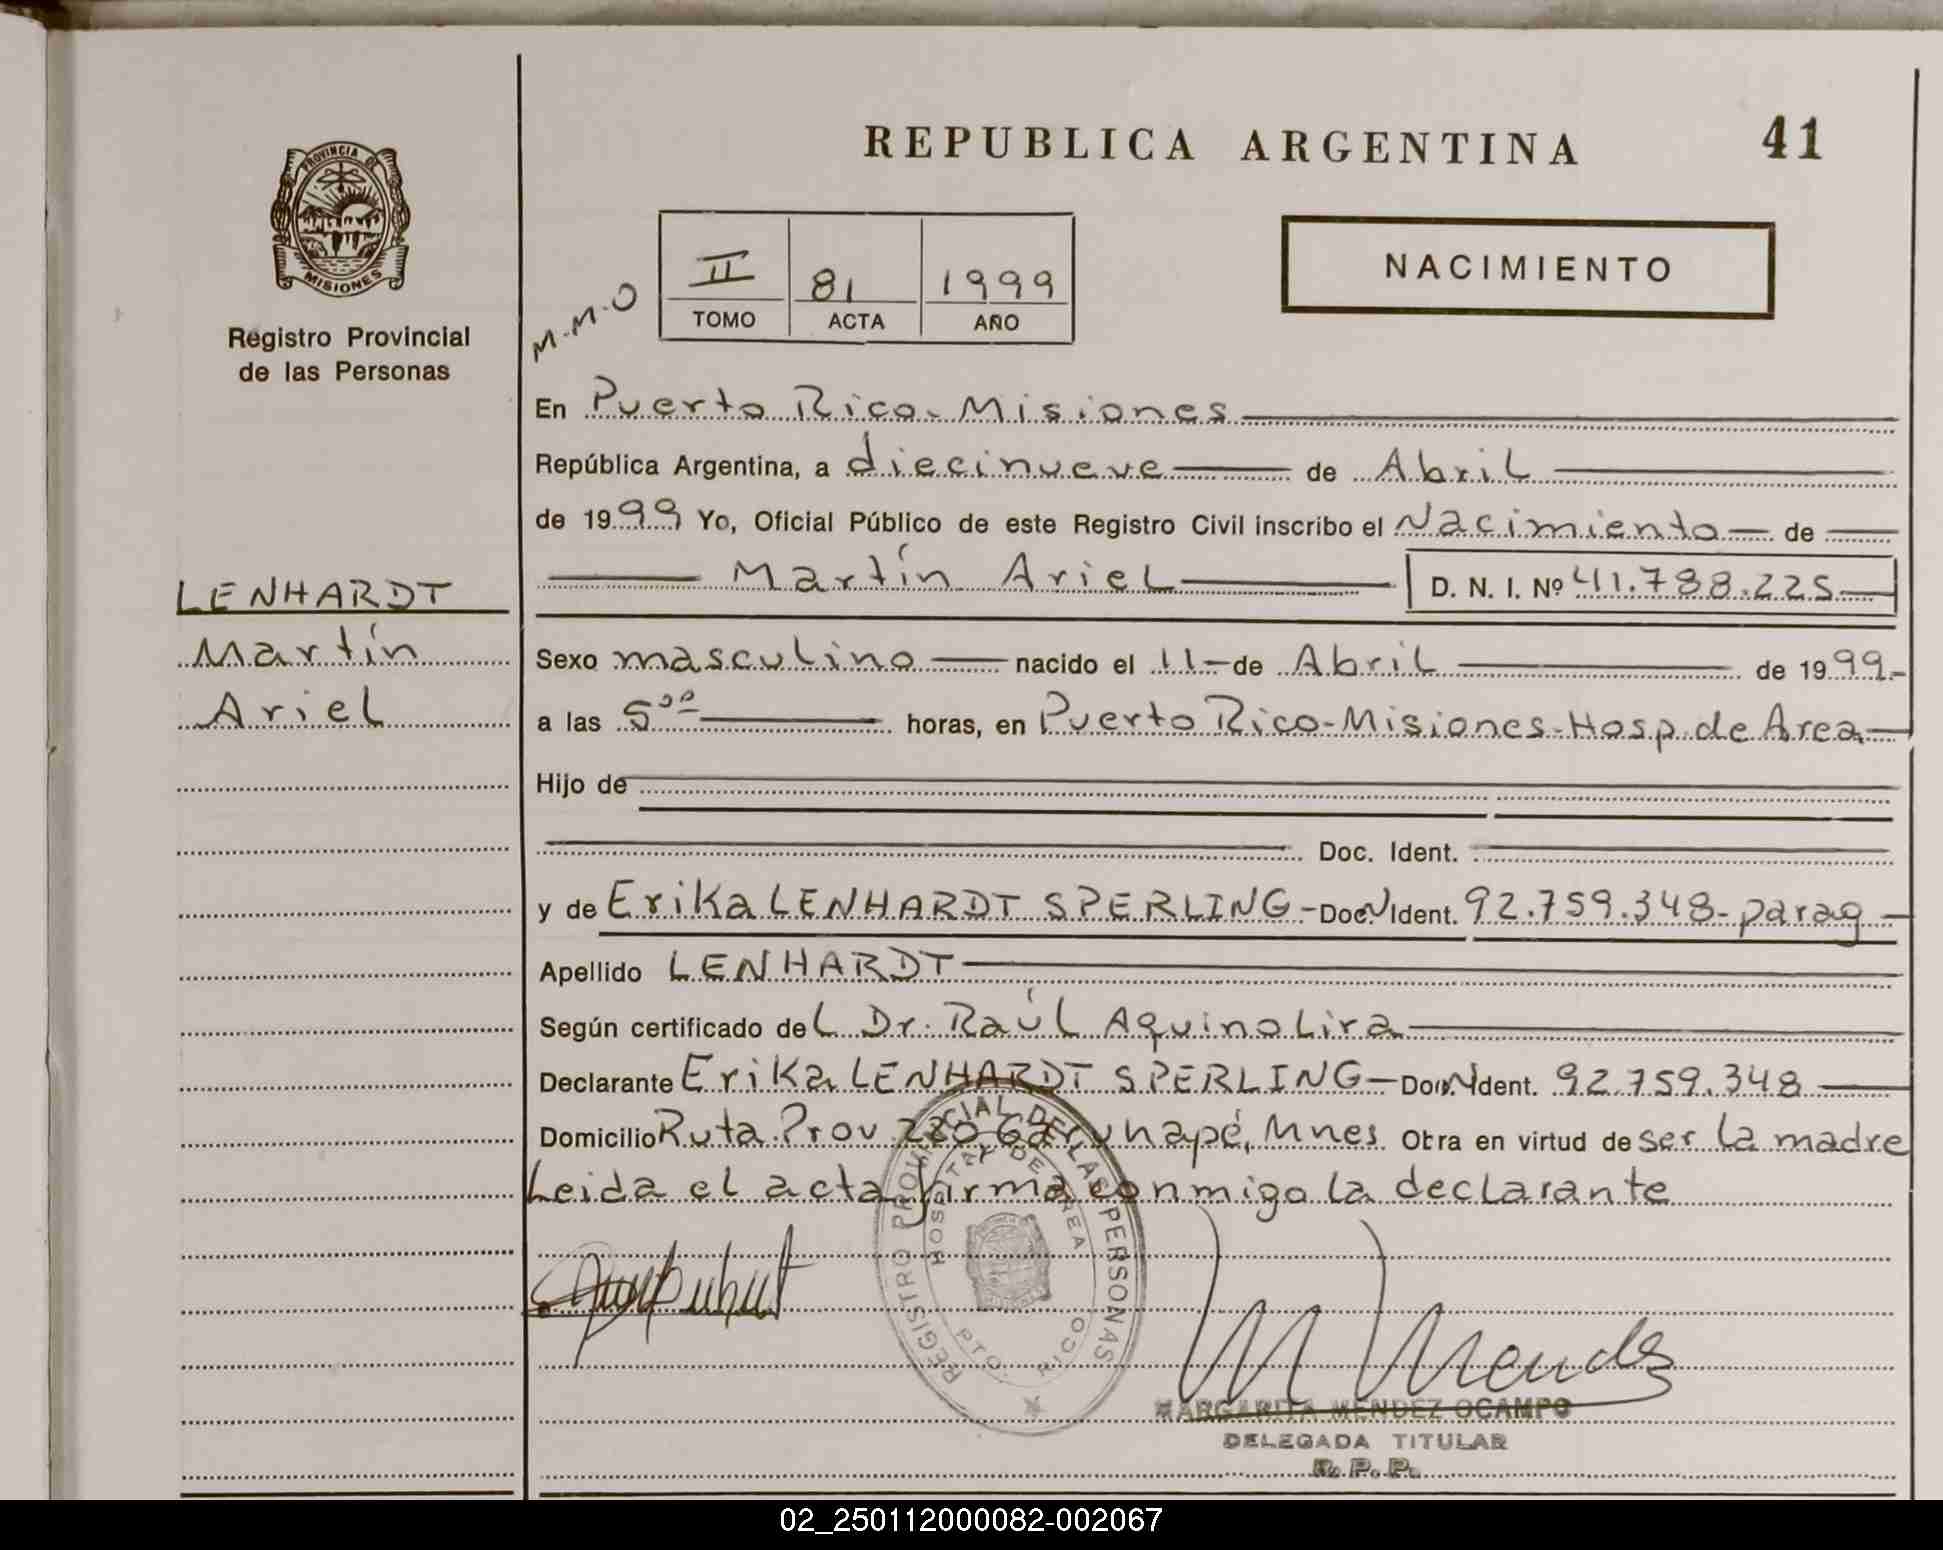 REPUBLICA ARGENTINA
41
PROVINCIA DE
MISIONES
Registro Provincial
de las Personas
M.M.O
II 81 1999
TOMO ACTA AÑO
NACIMIENTO
En Puerto Rico - Misiones
República Argentina, a diecinueve de Abril
de 1999 Yo, Oficial Público de este Registro Civil inscribo el Nacimiento de
Martín Ariel D. N. I. Nº 41.788.225
LENHARDT
Martín
Ariel
Sexo masculino nacido el 11 de Abril de 1999.-
a las 5⁰⁰ horas, en Puerto Rico-Misiones-Hosp.de Area
Hijo de
Doc. Ident.
y de Erika LENHARDT SPERLING - Doc. N Ident. 92.759.348- parag
Apellido LENHARDT
Según certificado del Dr. Raúl Aquino Lira
Declarante Erika LENHARDT SPERLING - Doc. N Ident. 92.759.348
Domicilio Ruta Prov 220 Garuhapé, Mnes. Obra en virtud de ser la madre
Leida el acta firma conmigo la declarante
REGISTRO PROVINCIAL DE LAS PERSONAS
HOSPITAL DE AREA
PTO. RICO
M Mendez
MARGARITA MENDEZ OCAMPO
DELEGADA TITULAR
R. P. P.
02_250112000082-002067